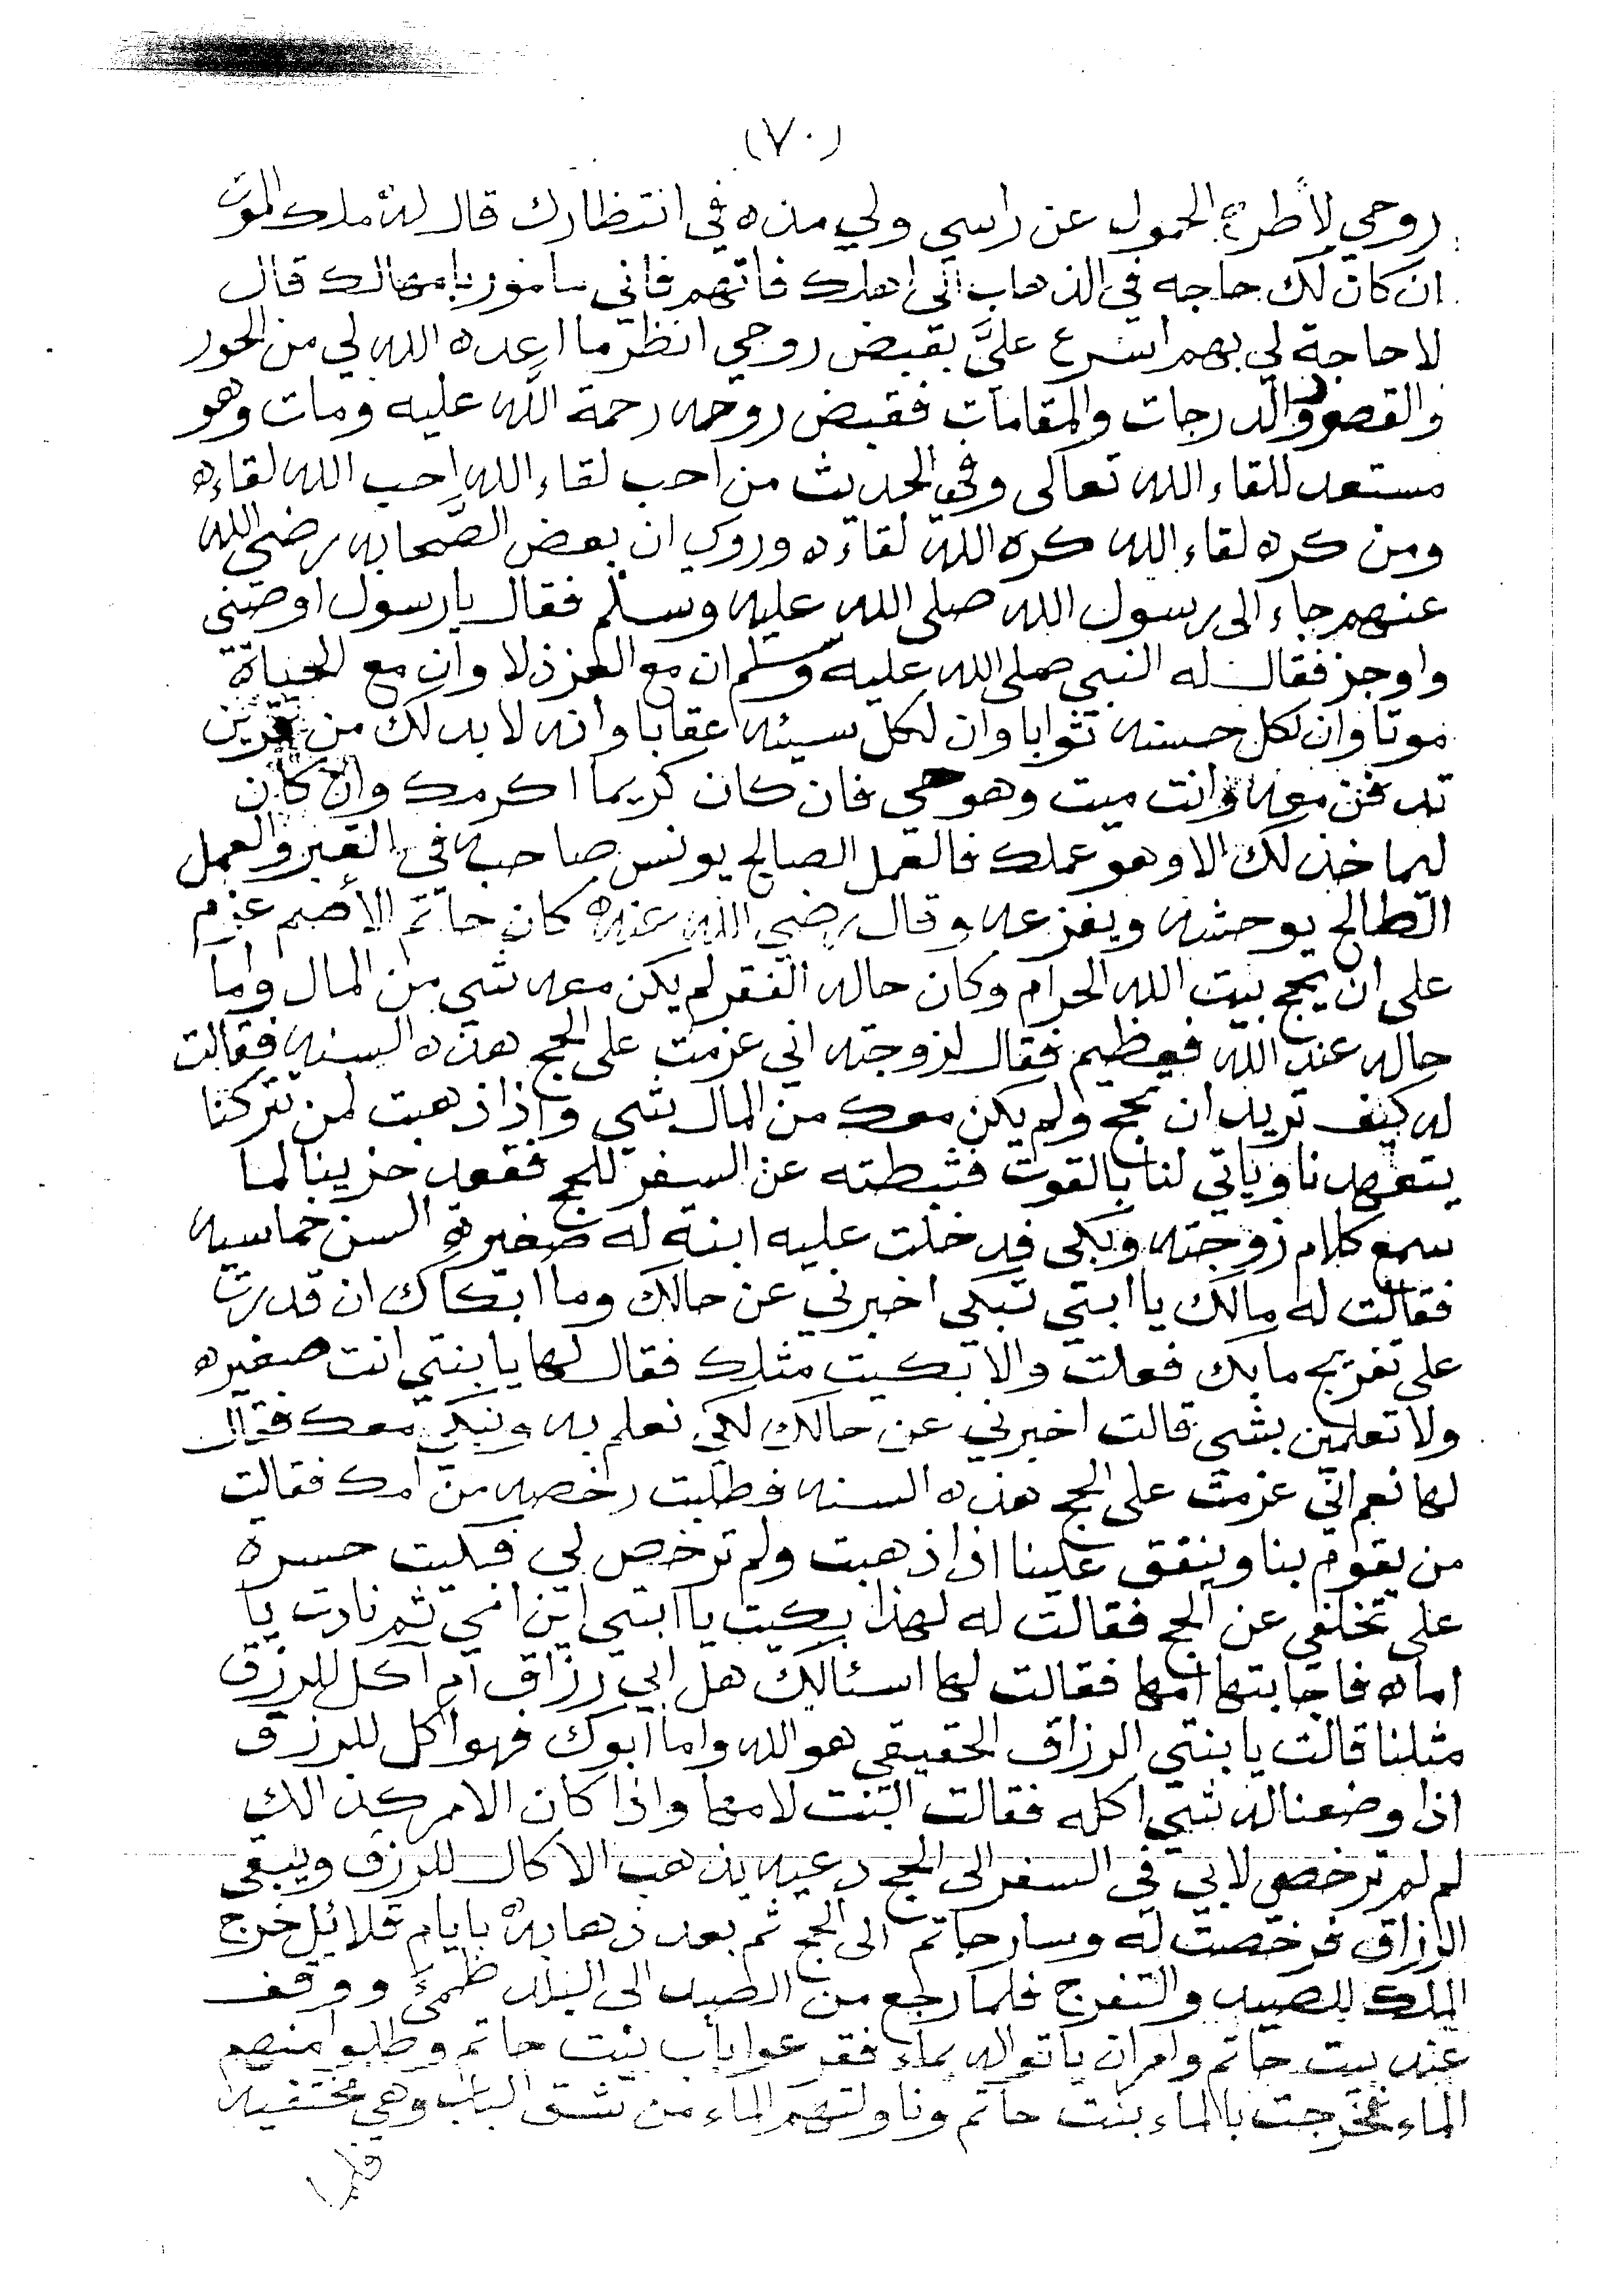 (٧٠)
روحي لأطرح الحمول عن راسي ولي مده في انتظارك قال له ملك الموت
ان كان لك حاجه في الذهاب الى اهلك فاتهم فاني مامور بامهالك قال
لا حاجة لي بهم اسرع عليَّ بقبض روحي انظر ما اعده الله لي من الحور
والقصور والدرجات والمقامات فقبض روحه رحمة الله عليه ومات وهو
مستعد للقاء الله تعالى وفي الحديث من احب لقاء الله احب الله لقاءه
ومن كره لقاء الله كره الله لقاءه وروي ان بعض الصَّحابه رضي الله
عنهم جاء الى رسول الله صلى الله عليه وسلم فقال يا رسول اوصني
واوجز فقال له النبي صلى الله عليه وسلم ان مع العز ذلا وان مع الحياة
موتا وان لكل حسنه ثوابا وان لكل سيئه عقابا وانه لا بد لك من قرين
تدفن معه وانت ميت وهو حي فان كان كريما اكرمك وان كان
ليما خذلك الا وهو عملك فالعمل الصالح يونس صاحبه في القبر والعمل
الطالح يوحشه ويفزعه وقال رضي الله عنه كان حاتم الأصم عزم
على ان يحج بيت الله الحرام وكان حاله الفقر لم يكن معه شي من المال واما
حاله عند الله فعظيم فقال لزوجته اني عزمت على الحج هذه السنه فقالت
له كيف تريد ان تحج ولم يكن معك من المال شي واذا ذهبت لمن تتركنا
يتعهدنا وياتي لنا بالقوت فثبطته عن السفر للحج فقعد حزينا لما
سمع كلام زوجته وبكى فدخلت عليه ابنة له صغيرة السن خماسيه
فقالت له مالك يا ابتي تبكى اخبرني عن حالك وما ابكاك ان قدرت
على تفريج ما بك فعلت والا بكيت مثلك فقال لها يا بنتي انت صغيره
ولا تعلمين بشي قالت اخبرني عن حالك لكي نعلم به ونبكي معك فقال
لها نعم اني عزمت على الحج هذه السنه فطلبت رخصه من امك فقالت
من يقوم بنا وينفق علينا اذا ذهبت ولم ترخص لي فبكيت حسرة
على تخلفي عن الحج فقالت له لهذا بكيت يا ابتي اين امي ثم نادت يا
اماه فاجابتها امها فقالت لها اسئالك هل ابي رزاق ام آكل للرزق
مثلنا قالت يا بنتي الرزاق الحقيقي هو الله واما ابوك فهو آكل للرزق
اذا وضعنا له شي اكله فقالت البنت لامها واذا كان الامر كذالك
لم لم ترخصي لابي في السفر الى الحج دعيه يذهب الاكال للرزق ويبقى
الرزاق فرخصت له وسار حاتم الى الحج ثم بعد ذهابه بايام قلائل خرج
الملك للصيد والتفرج فلما رجع من الصيد الى البلد ظمئ ووقف
عند بيت حاتم وامر ان ياتوا له بماء فقرعوا باب بيت حاتم وطلبوا منهم
الماء فخرجت باالماء بنت حاتم وناولتهم الماء من شق الباب وهي مختفيه
فلما